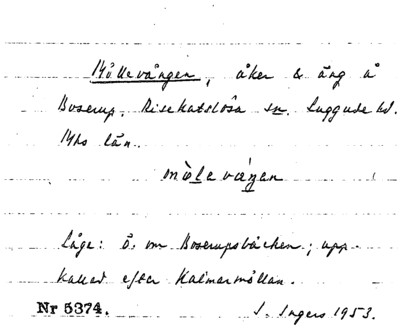 Möllevången, åker & äng å
Boserup, Risekatslösa sn. Luggude hd.
Mhs län.
mø̀levaŋen
Läge: ö. om Boserupsbäcken; upp-
kallad efter Kalmarmöllan.
Nr 5374. I. Ingers 1953.